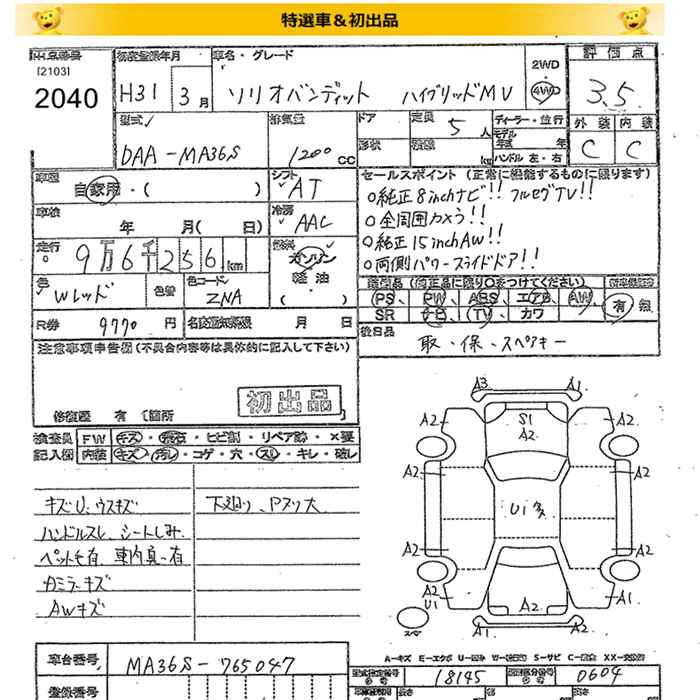 特選車＆初出品
出品番号
[2103]
2040
初度登録年月
H31 3月
車名・グレード
ソリオバンディット ハイブリッドMV
2WD
4WD
評価点
3.5
型式
DAA-MA36S
排気量
1200 cc
ドア
形状
定員
5人
積載
kg
ディーラー・並行
モデル
年式 年
ハンドル 左・右
外装 内装
C C
車歴
自家用・( )
シフト
AT
セールスポイント (正常に機能するものに限ります)
○純正8inchナビ!! フルセグTV!!
○全周囲カメラ!!
○純正15inchAW!!
○両側パワースライドドア!!
車検
年 月( 日)
冷房
AAC
走行
9万6千256km
燃料
ガソリン
軽油
( )
色
Wレッド
色替
色コード
ZNA
装備品 (純正品に限り○をつけてください)
PS、PW、ABS、エアB、AW、
SR ナビ TV カワ
有 無
R券
9770円
名変期限 月 日
後日品
取・保・スペアキー
注意事項申告欄 (不具合内容等は具体的に記入して下さい)
初出品
修復歴 有 (箇所
検査員 FW キズ・飛石・ヒビ割・リペア跡・×要
記入欄 内装 キズ・汚レ・コゲ・穴・スレ・キレ・破レ
キズU、ウスキズ
下廻り、Pスリ大
ハンドルスレ、シートしみ
ペット毛有、車内臭い有
カミラーキズ
AWキズ
A3 A1
A2 S1 A2 A2
A2 A2
U1多
A2 A2
A2 U1 A2 A1
スペア
A1 A2
A-キズ E-エクボ U-凹み W-(補修跡) S-サビ C-腐食 XX-交換済
車台番号
MA36S-765047
型式指定番号
18145
類別区分番号
0604
登録番号